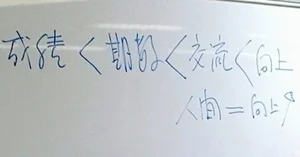 成績<期待<交流<向上
人間=向上